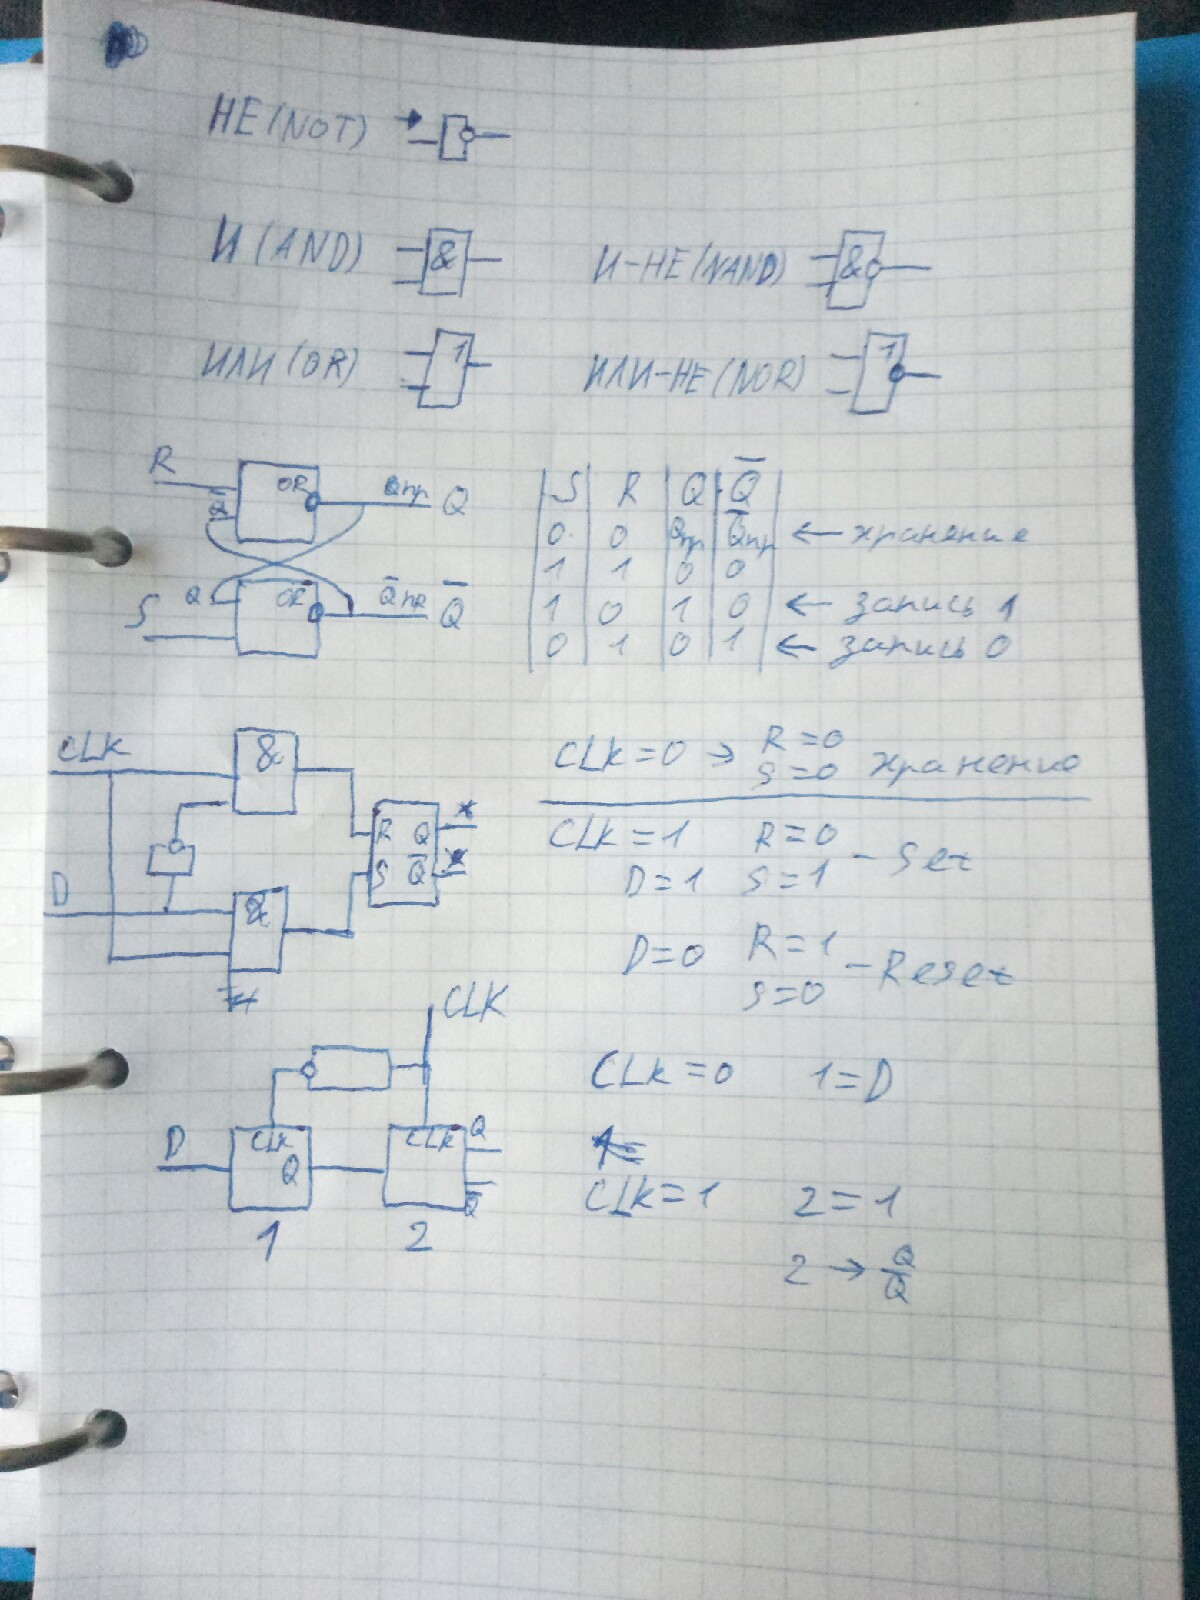 НЕ (NOT)
И (AND) &
И-НЕ (NAND) &
ИЛИ (OR) 1
ИЛИ-НЕ (NOR) 1
R Q̄ OR Qпр Q
S Q OR Q̄пр Q̄
S R Q Q̄
0 0 Qпр Q̄пр ← хранение
1 1 0 0
1 0 1 0 ← запись 1
0 1 0 1 ← запись 0
CLK &
R Q
S Q̄
D &
CLK=0 → R=0
S=0 хранение
CLK=1 R=0
D=1 S=1 - Set
D=0 R=1
S=0 - Reset
CLK
D CLK Q CLK Q
Q̄
1 2
CLK=0 1=D
CLK=1 2=1
2 → Q
Q̄